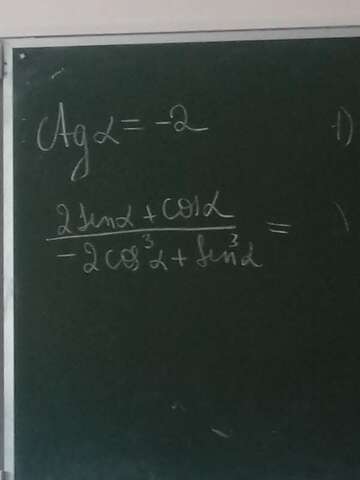 ctg α = -2
1)
2 sin α + cos α
=
-2 cos³ α + sin³ α